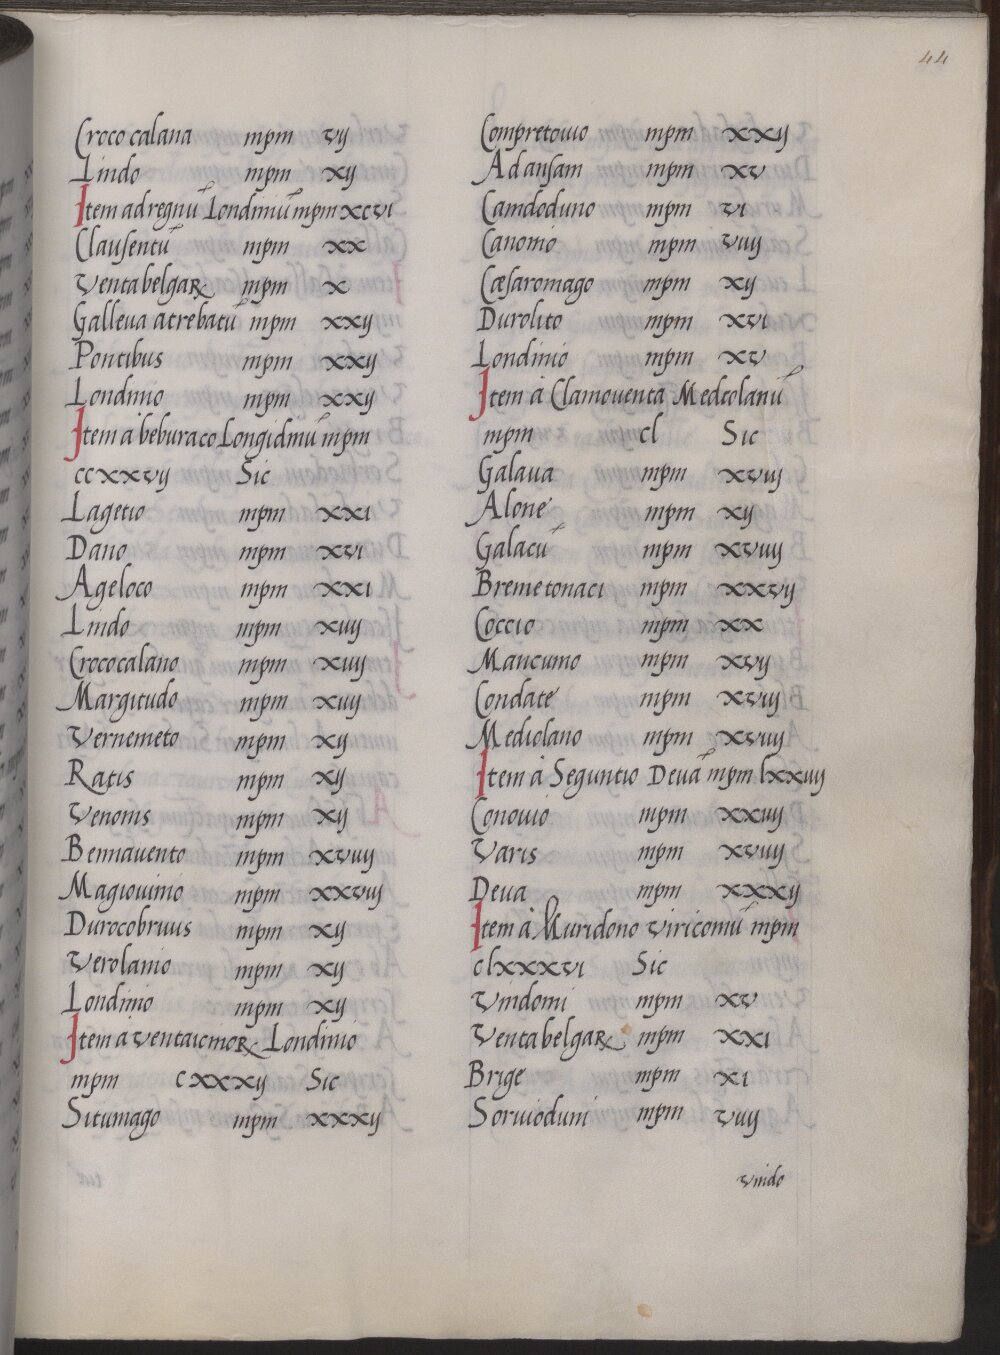 44
Croco calana mpm vij
Lindo mpm xij
Item ad regnū Londiniū mpm xcvi
Clausentū mpm xx
Venta belgaꝝ mpm x
Galleua atrebatū mpm xxij
Pontibus mpm xxij
Londinio mpm xxij
Item à beburaco Longidiniū mpm
ccxxvij Sic
Lagetio mpm xxi
Dano mpm xvi
Ageloco mpm xxi
Lindo mpm xiiij
Crococalano mpm xiiij
Margitudo mpm xiiij
Vernemeto mpm xij
Ratis mpm xij
Venonis mpm xij
Bennauento mpm xviiij
Magiouinio mpm xxviij
Durocobriuis mpm xij
Verolamio mpm xij
Londinio mpm xij
Item à venta icinoꝝ Londinio
mpm cxxxij Sic
Situmago mpm xxxij
Compretouio mpm xxij
Ad ansam mpm xv
Camdoduno mpm vi
Canonio mpm viiij
Cæsaromago mpm xij
Durolito mpm xvi
Londinio mpm xv
Item à Clamouenta Mediolanū
mpm cl Sic
Galaua mpm xviij
Alone mpm xij
Galacū mpm xviiij
Bremetonaci mpm xxvij
Coccio mpm xx
Mancunio mpm xvij
Condate mpm xviij
Mediolano mpm xviiij
Item à Seguntio Deuā mpm lxxiiij
Conouio mpm xxiiij
Varis mpm xviiij
Deua mpm xxxij
Item à Muridono viriconiū mpm
clxxxvi Sic
Vindomi mpm xv
Venta belgaꝝ mpm xxi
Brige mpm xi
Soruioduni mpm viiij
vindo